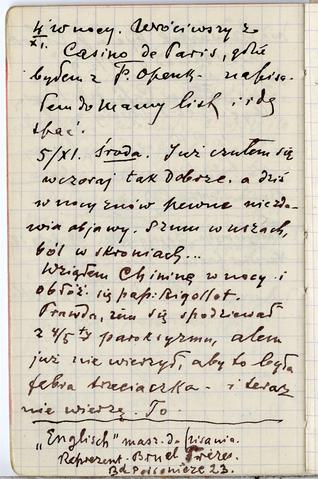 4/XI. w nocy. Wróciwszy z
Casino de Paris, gdzie
byłem z F. Openk- napisa-
łem do Mamy list i idę
spać.
5/XI. Środa. Już czułem się
wczoraj tak dobrze. a dziś
w nocy znów pewne niezdro-
wia objawy. Szum w uszach,
ból w skroniach...
Wziąłem Chininę w nocy i
obłóż. się pap. Rigollot.
Prawda, żem się spodziewał
z 4/5 ty paroksyzmu, alem
już nie wierzył, aby to była
febra trzeciaczka. - i teraz
nie wierzę. To -
„Englisch" masz. do pisania.
Reprezent. Bruel Frères.
Bd Poissonière 23.